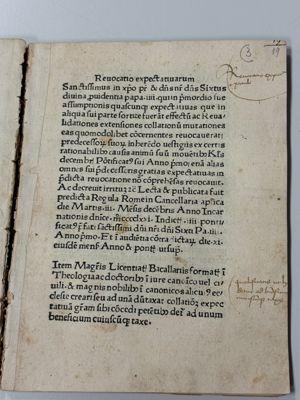 Reuocatio expectatiuarum
Sanctissimus in xp̄o pr̄ & dn̄s nr̄ dn̄s Sixtus
diuina ꝓuidentia papa .iiii. qui in pͥmordio sue
assumptionis quascunqꝫ expectatiuas que in
aliqua sui parte sortite fuerāt effectū ac Reua⸗
lidationes extensiones collationū mutationes
eas quomodolibet cōcernentes reuocauerat:
predecessorꝝ suorꝝ inherēdo uestigiis ex certis
rationabilibus causis animū suū mouentibꝰ
decembrꝭ Pōtificatꝰ sui Anno pͥmo: enā alias
omnes sui pͥdecessoris gratias expectatiuas in
pͥdicta reuocatione nō cōprehēsas reuocauit.
Ac decreuit irritu Lecta & publicata fuit
predicta Regula Rome in Cancellaria aplica
die Martis .iii. Mēsis decēbris Anno Incar
nationis dnice. Indict. ponti
ficatꝰ sāctissimi dn̄i nr̄i dn̄i Sixti Pa .iiii.
Anno pͥmo. Et ī audiētia cōtra dictaꝝ. die .xi.
eiusdē mensꝭ Anno & pont̄ utsupͣ.
Item Magrīs Licentiatꝭ Bacallariis formatꝭ ī
Theologia ac doctoribꝰ ī iure canōico uel ci⸗
uili & magis nobilibꝰ ī canonicos alicuiꝰ ec⸗
clesie creari seu ad unā dūtaxat collationē expec
tatiuā grām sibi cōcedi petētibꝰ dēt ad unum
beneficium cuiuscūqꝫ taxe.
3
19